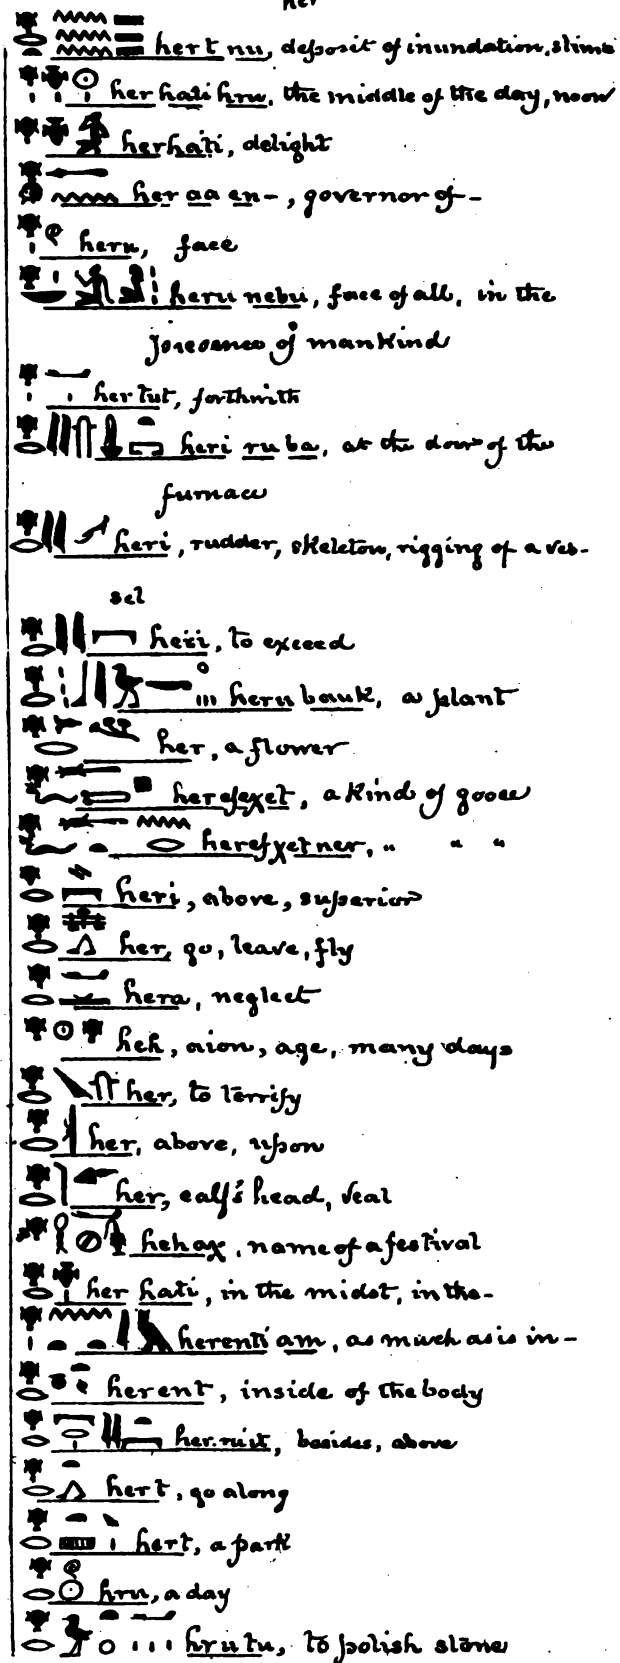 her
her t nu, deposit of inundation, slime
her hati hru, the middle of the day, noon
herhati, delight
her aa en-, governor of-
heru, face
heru nebu, face of all, in the
presence of mankind
her tut, forthwith
heri ru ba, at the door of the
furnace
heri, rudder, skeleton, rigging of a ves-
sel
heri, to exceed
heru bauk, a plant
her, a flower
herefexet, a kind of goose
herefxetner, " " "
heri, above, superior
her, go, leave, fly
hera, neglect
heh, aion, age, many days
her, to terrify
her, above, upon
her, calf's head, veal
hehax, name of a festival
her hati, in the midst, in the-
herenti am, as much as is in-
herent, inside of the body
besides, above
hert, go along
hert, a park
hru, a day
hrutu, to polish stone